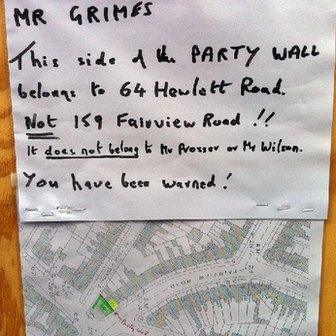 MR GRIMES
This side of the PARTY WALL
belongs to 64 Hewlett Road.
Not 159 Fairview Road !!
It does not belong to Mr Prosser or Mr Wilson.
You have been warned !
FAIRVIEW ROAD
Party Wall